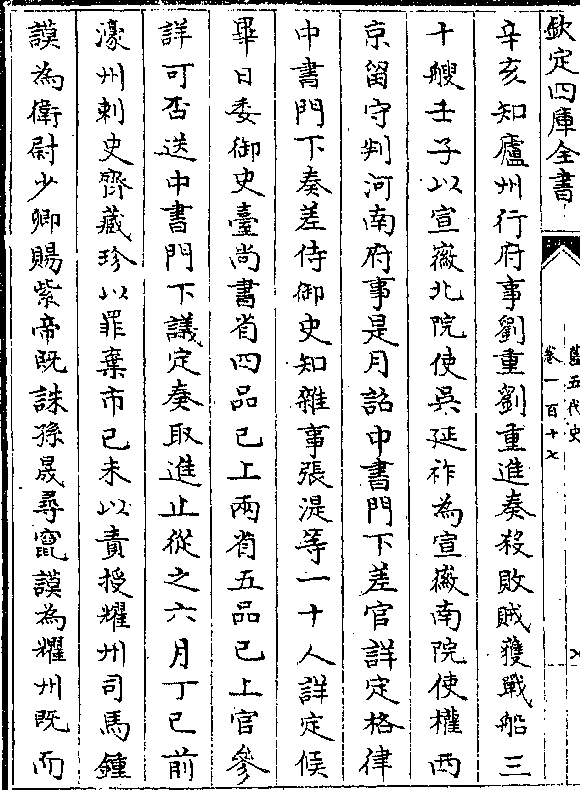 欽定四庫全書
舊五代史
卷一百十七
辛亥知廬州行府事劉重劉重進奏殺敗賊獲戰船三
十艘壬子以宣徽北院使吳延祚為宣徽南院使權西
京留守判河南府事是月詔中書門下差官詳定格律
中書門下奏差侍御史知雜事張湜等一十人詳定候
畢日委御史臺尚書省四品已上兩省五品已上官參
詳可否送中書門下議定奏取進止從之六月丁巳前
濠州刺史齊藏珍以罪棄市己未以責授耀州司馬鍾
謨為衛尉少卿賜紫帝既誅孫晟尋竄謨為耀州既而